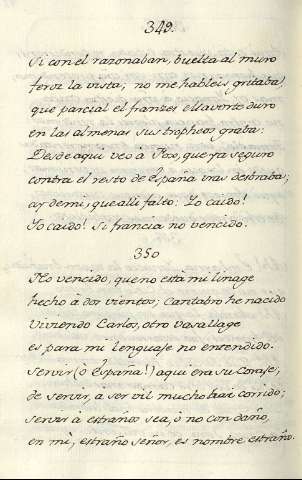 349.
Si con el razonaban, buelta al muro
feroz la vista; no me hableis gritaba,
que parcial el franzes ellavorte duro
en las almenas sus tropheos graba:
Desde aqui veo à Fox, que ya seguro
contra el resto de España vras desbraba;
ay de mi, que alli falto: Yo caido!
Yo caido! Si francia no vencido.
350
No vencido, que no està mi linage
hecho à dos vientos; Cantabro he nacido
Viviendo Carlos, otro Vasallage
es para mi lenguaje no entendido.
Servir (ò España!) aqui era su Coraje;
de servir, a ser vil mucho hai corrido;
servir à estraños sea, ò no con daño,
en mi, estraño señor, es nombre estraño.